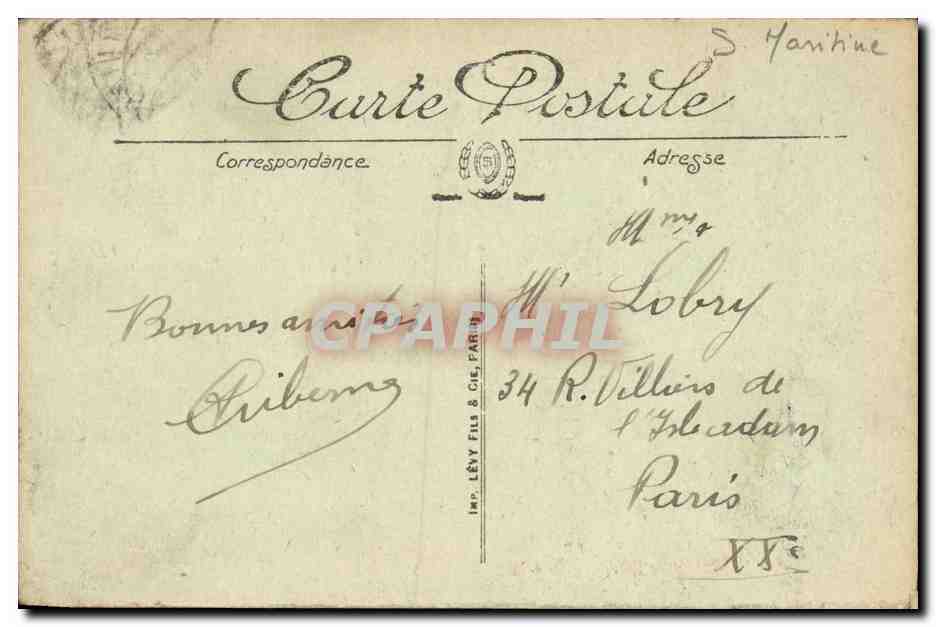 S. Maritime
Carte Postale
Correspondance
Adresse
Mme
Bonnes amitiés
Mr Lobry
CPAPHIL
34 R. Villiers de
l'Isle adam
Paris
XXe
IMP. LÉVY FILS & CIE, PARIS